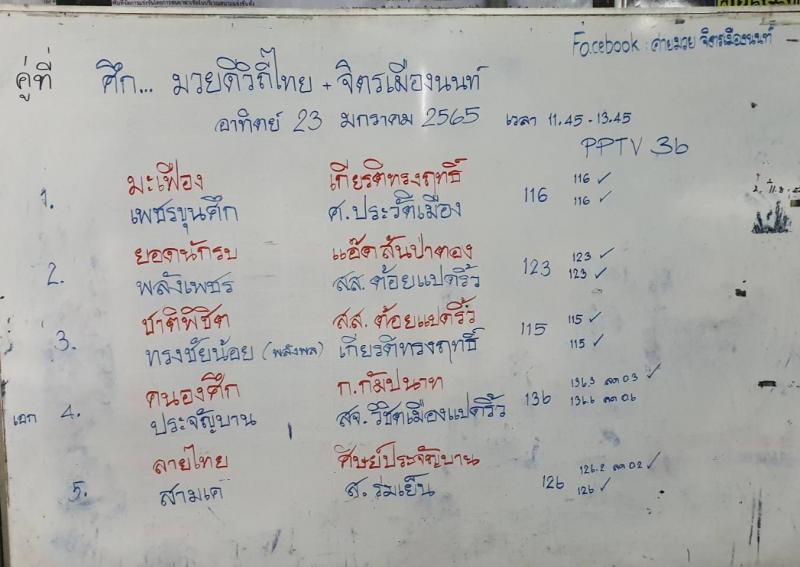 Facebook : ค่ายมวย จิตรเมืองนนท์
คู่ที่ ศึก... มวยดีวิถีไทย + จิตรเมืองนนท์
อาทิตย์ 23 มกราคม 2565 เวลา 11.45 - 13.45
PPTV 36
1. มะเฟือง เกียรติทรงฤทธิ์ 116 116 ✓
เพชรขุนศึก ศ.ประวัติเมือง 116 ✓
2. ยอดนักรบ แอ๊ดสันป่าตอง 123 123 ✓
พลังเพชร สส.ต้อยแปดริ้ว 123 ✓
3. ชาติพิชิต สส.ต้อยแปดริ้ว 115 115 ✓
ทรงชัยน้อย (พลังพล) เกียรติทรงฤทธิ์ 115 ✓
เอก 4. คนองศึก ก.กัมปนาท 136 136.3 ลด 0.3 ✓
ประจัญบาน สจ.วิชิตเมืองแปดริ้ว 136.6 ลด 0.6
5. ลายไทย ศิษย์ประจัญบาน 126 126.2 ลด 0.2 ✓
สามเค ส.ร่มเย็น 126 ✓